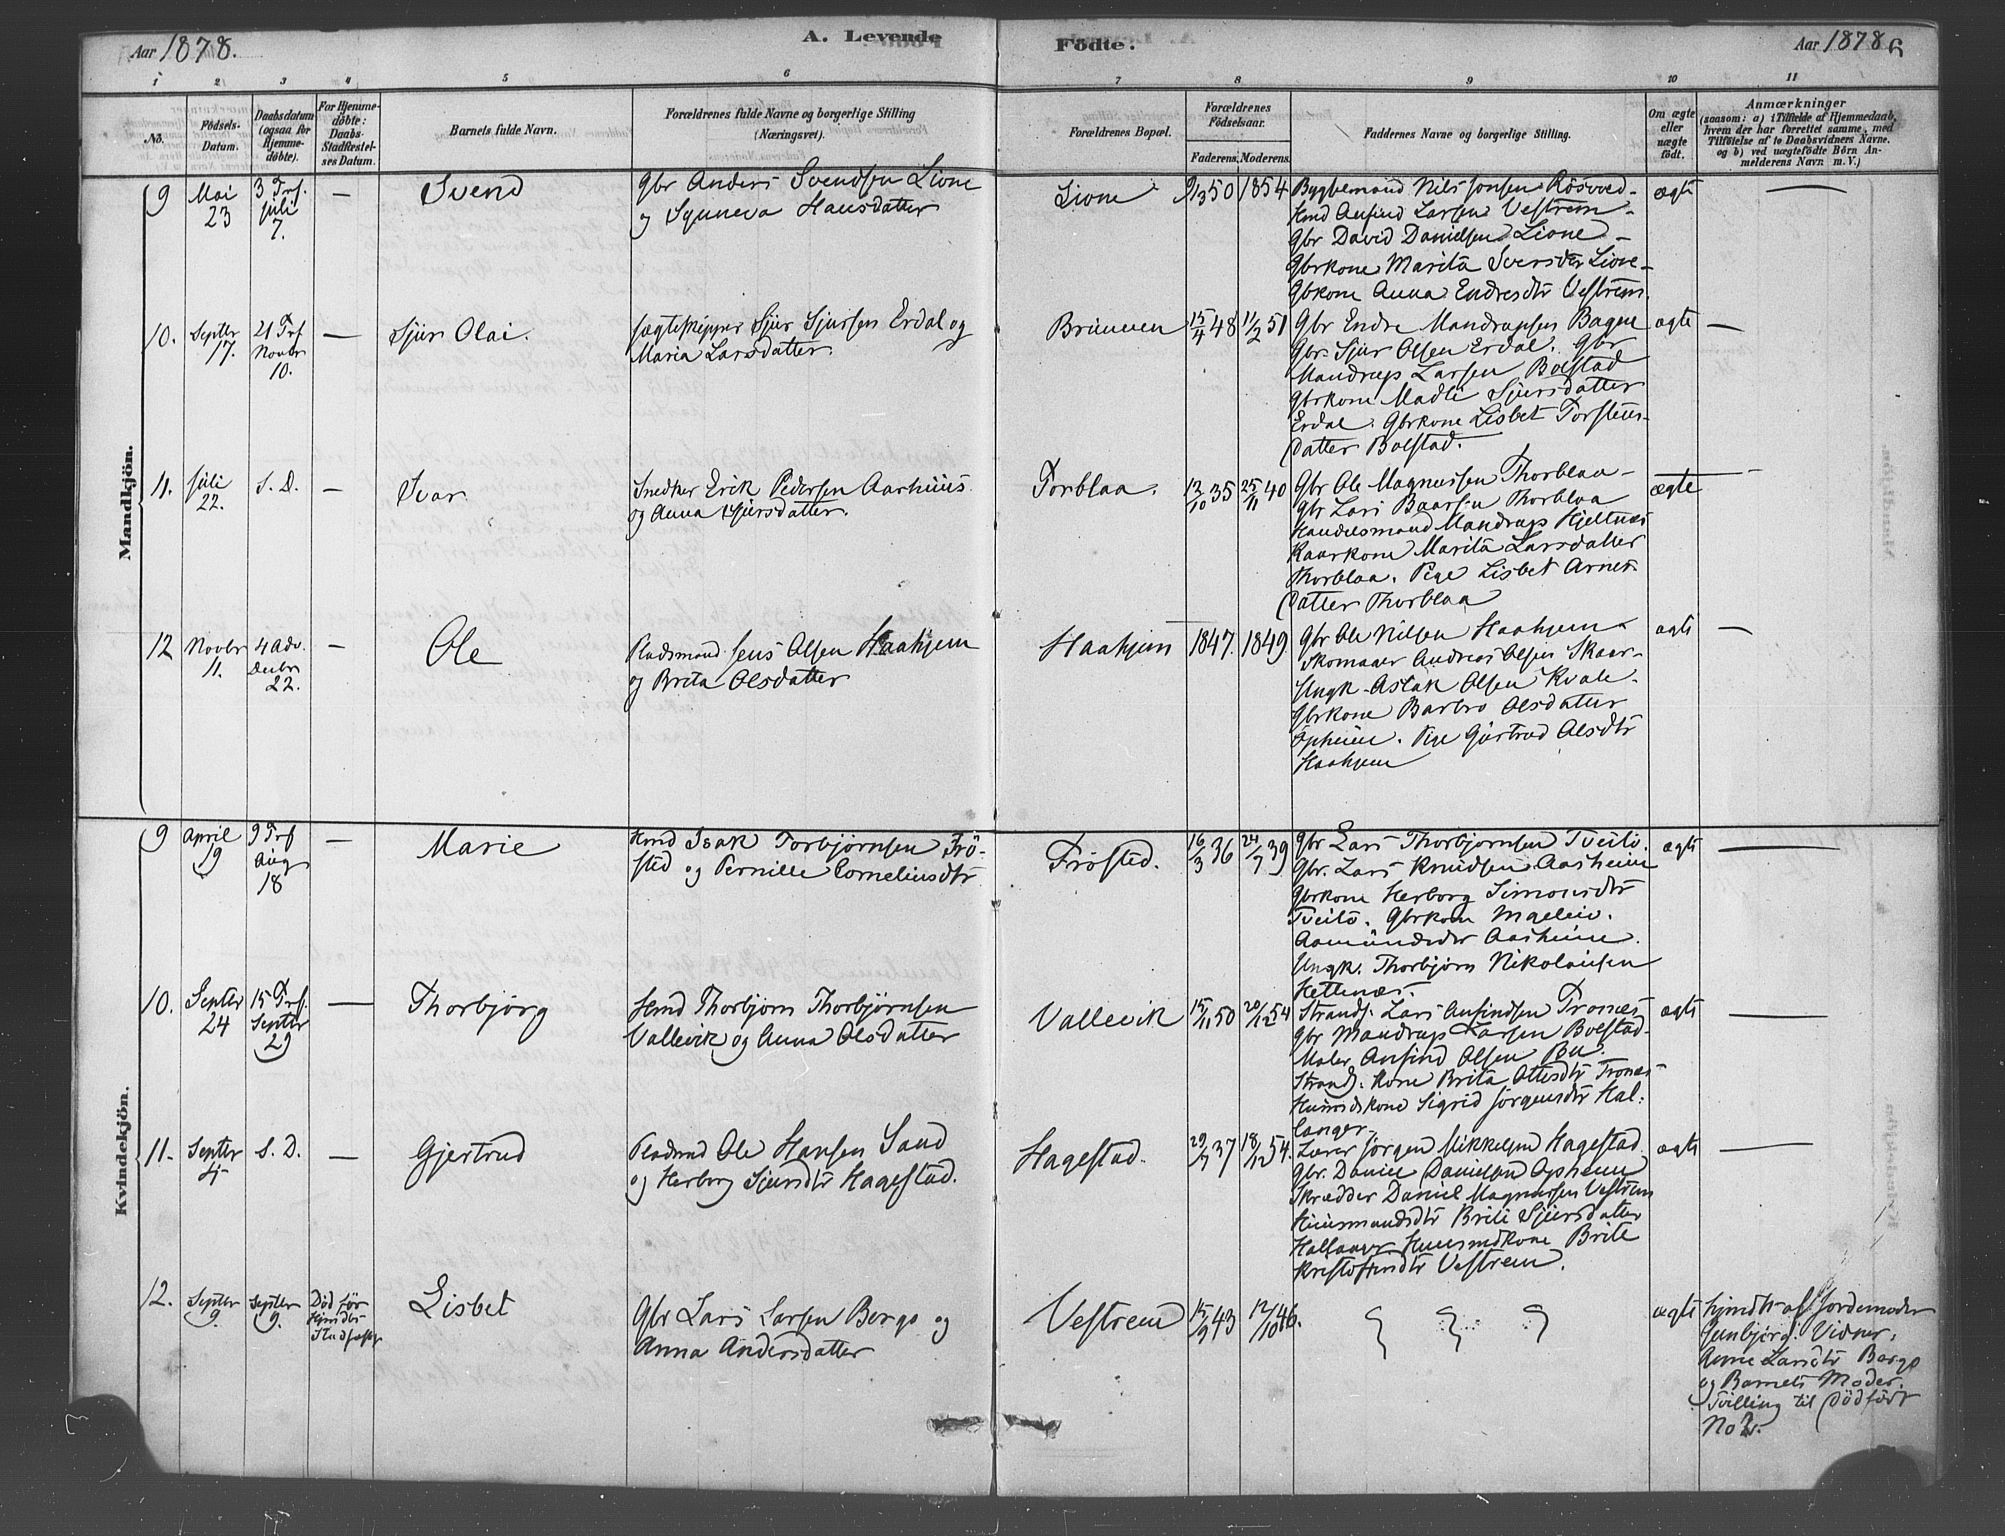 Aar 1878.
A. Levende
Födte.
Aar 1878
6
1 2 3 4 5 6 7 8 9 10 11
No.
Födsels-Datum.
Daabsdatum (ogsaa for Hjemme-döbte).
For Hjemme-döbte: Daabs-Stadfæstel-ses Datum.
Barnets fulde Navn.
Forældrenes fulde Navne og borgerlige Stilling (Næringsvei).
Forældrenes Bopæl.
Forældrenes Födselsaar.
Faderens. Moderens.
Faddernes Navne og borgerlige Stilling.
Om ægte eller uægte födt.
Anmærkninger
(saasom: a) i Tilfælde af Hjemmedaab, hvem der har forrettet samme, med Tilföielse af to Daabsvidners Navne. og b) ved uægtefödte Börn Anmelderens Navn m. V.)
Mandkjön.
9 Mai 23 3 Trf. Juli 7. — Svend
Gbr Anders Svendsen Lione
og Synneva Hansdatter
Lione 9/13 50 1854
Bygdemand Nils Jonsen
Hmd Anfind Larsen Vestrem -
Gbr David Danielsen Lione -
Gbrkone Marita Lione -
Gbkone Anna Endresdtr Vestrem.
ægte —
10. Septbr 17. 21 Trf Novbr 10. — Sjur Olai.
Jægteskipper Sjur Sjursen Erdal og
Maria Larsdatter.
Bruneven 15/4 48 11/2 51
Gbr Endre Mandrupsen Bagne
Gbr. Sjur Olsen Erdal. Gbr
Mandrup Larsen Bolstad
Gbrkone Madli Sjursdatter
Erdal. Gbrkone Lisbet Torsteins-
datter Bolstad.
ægte —
11. Juli 22. S. D. — Ivar
Snedker Erik Pedersen Aarhuus
og Anna Sjursdatter.
Torblaa. 12/10 35 25/11 40
Gbr Ole Magnussen Thorblaa -
Gbr Lars Baarsen Thorblaa
Handelsmand Mandrup Hjeltnæs
Kaarkone Marita Larsdatter
Thorblaa. Pige Lisbet Arnes-
datter Thorblaa
ægte —
12 Novbr 11. 4 Adv. Decbr 22. — Ole
Pladsmand Jens Olsen Haahjem
og Brita Olsdatter
Haahjem 1847. 1849.
Gbr Ole Nilsen Haahjem
Skomager Andreas Olsen Skaar -
Ungk. Aslak Olsen Kvale.
Gbrkone Barbro Olsdatter
Opheim. Pige Gjertrud Olsdtr
Haahjem
ægte —
Kvindekjön.
9 April 19 9 Trf Aug 18 — Marie
Hmd Isak Torbjörnsen Frö-
sted og Pernille Corneliusdtr
Frösted. 16/3 36 24/7 39
Gbr Lars Thorbjörnsen Tveito.
Gbr. Lars Knudsen Aasheim
Gbrkone Herborg Simonsdtr
Tveito. Gbrkone Ingeleiv.
Aamundsdtr Aasheim.
Ungk. Thorbjörn Nikolaisen
Hettenæs.
ægte —
10. Septbr 24 15 Trf. Septbr 29 — Thorbjörg
Hmd Thorbjörn Thorbjörnsen
Vallevik og Anna Olsdatter
Vallevik 15/11 50 20/12 54
Strands. Lars Anfindsen Tronæs
Gbr Mandrup Larsen Bolstad -
Maler Anfind Olsen Bu.
Strands. kone Brita Ottesdtr Tronæs
Huusmdskone Sigrid Jörgensdtr Hal-
langer.
ægte —
11. Septbr 4 S. D. — Gjertrud
Pladsmd Ole Hansen Sand
og Herborg Sjursdtr Hagestad.
Hagestad. 29/7 37 18/12 54.
Lærer Jörgen Mikkelsen Hagestad
Gbr. Daniel Danielsen Opheim
Skrædder Daniel Magnussen Vestrem
Huusmandsdtr Brita Sjursdatter
Hallanger. Huusmdkone Brite
Kristoffersdtr Vestrem.
ægte —
12. Septbr 9. Septbr 9. Död för Hjmdbs Stadfæst. Lisbet
Gbr Lars Larsen Berge og
Anna Andersdatter
Vestrem 15/9 43 12/10 46.
ægte
Hjmdbt af Jordemoder
Gunbjörg. Vidner.
Anne Larsdtr Berge
og Barnets Moder.
Tvilling til Dödfödt
No 2.